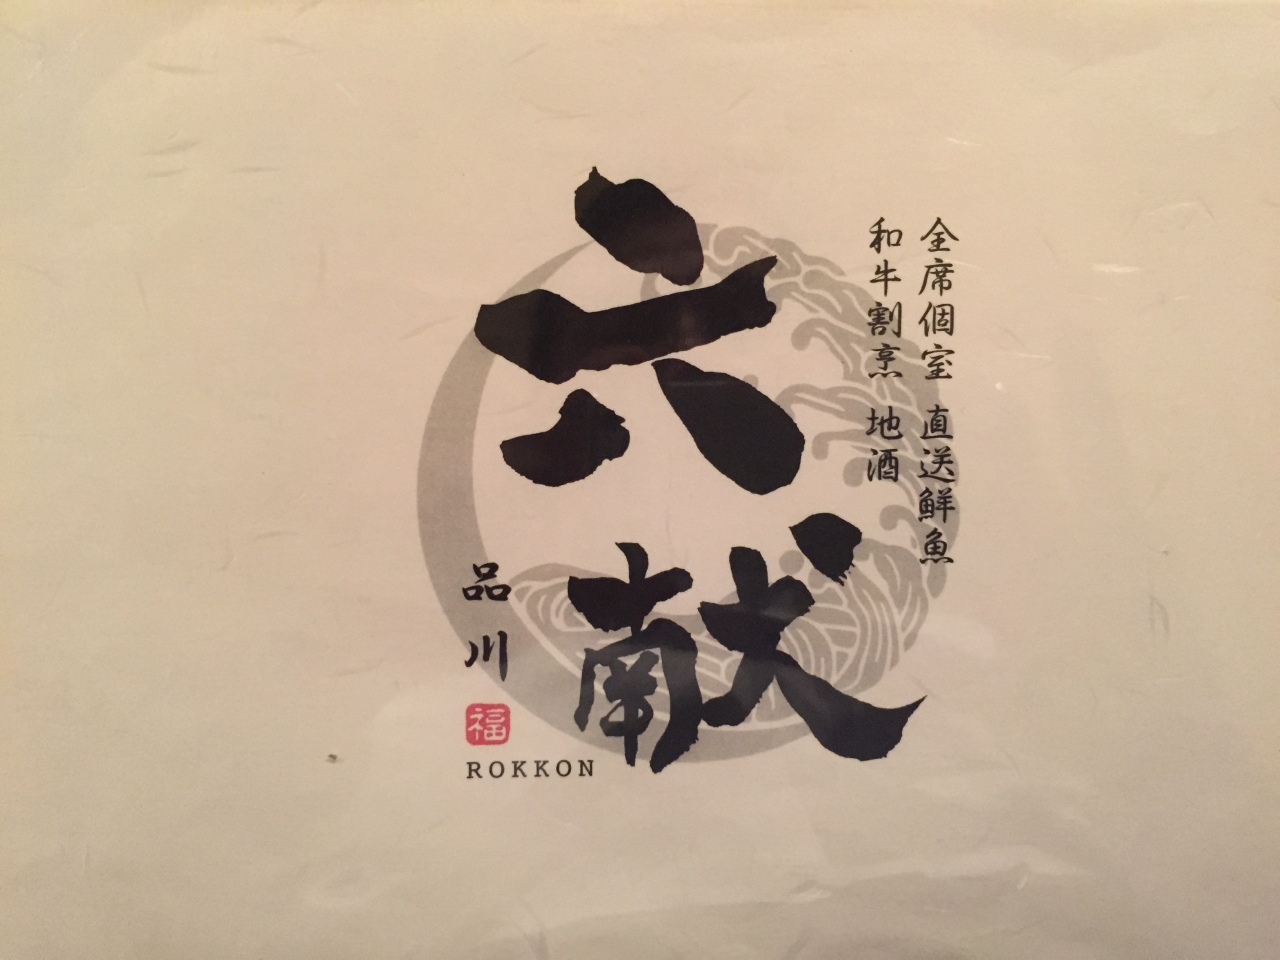 全席個室 直送鮮魚
和牛割烹 地酒
六献
品川
福
ROKKON